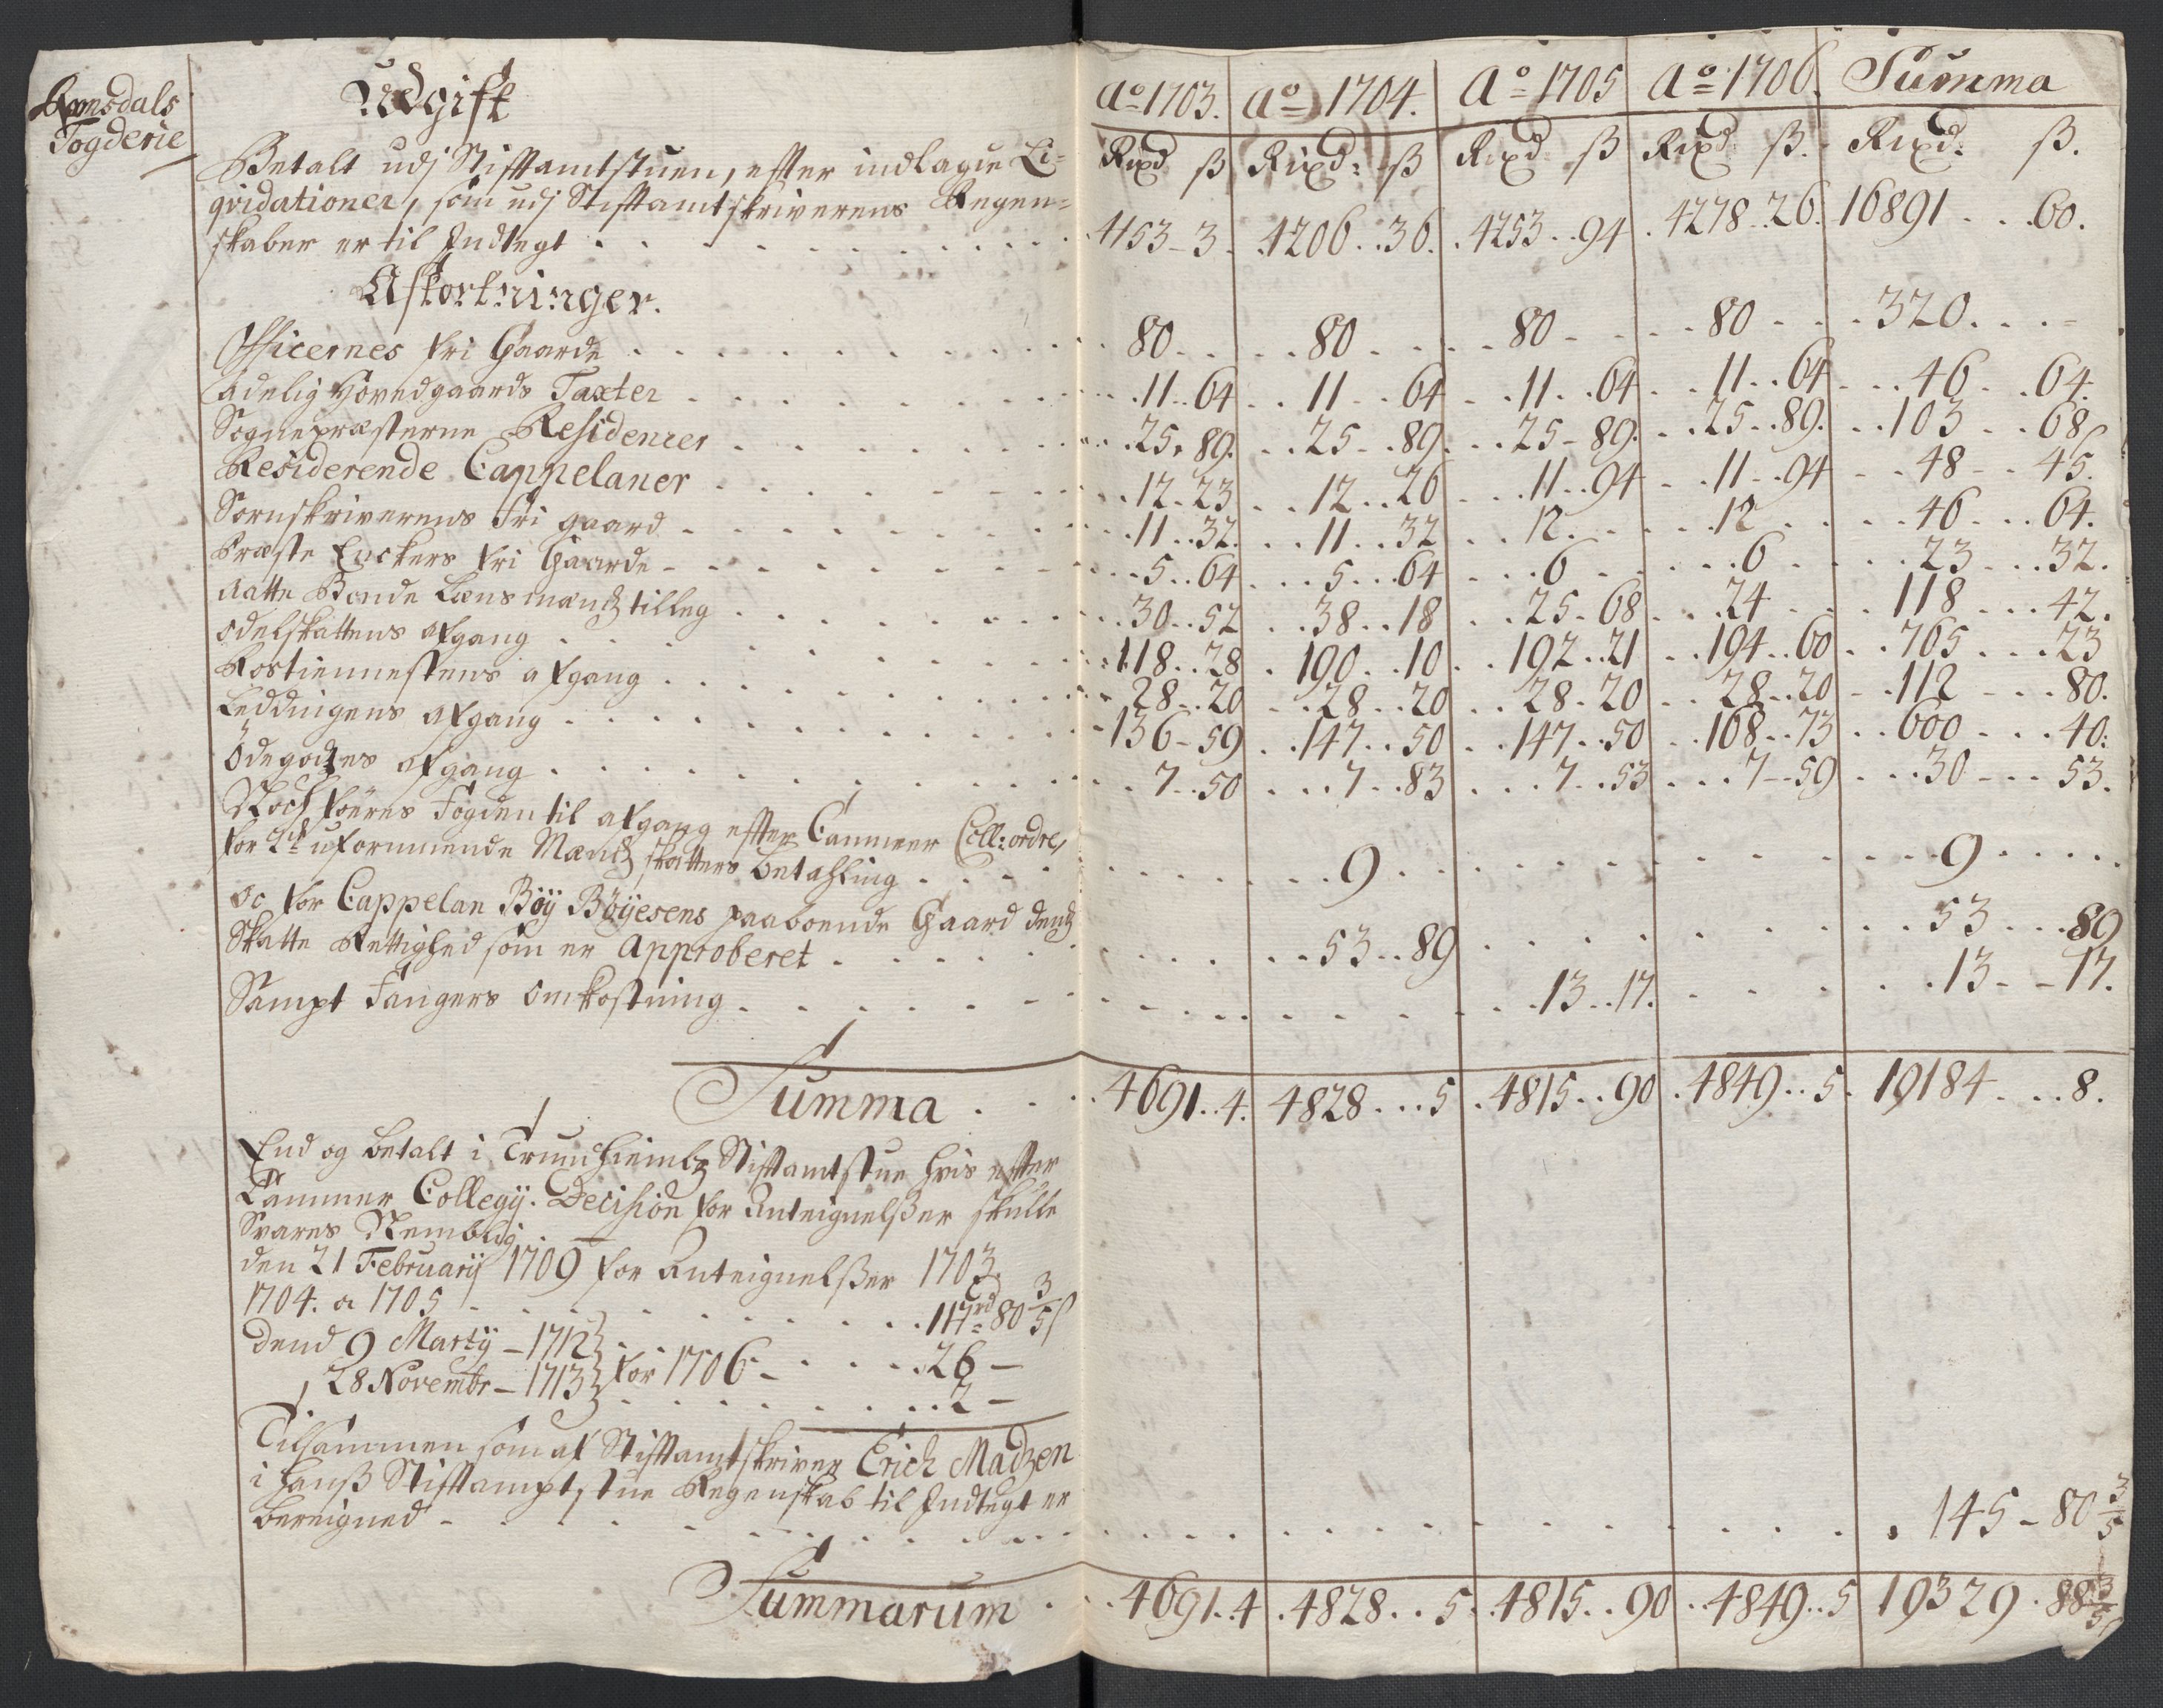 Romsdals
Fogderie
Udgift
Aº 1703. Aº 1704. Aº 1705 Aº 1706. Summa
Rixd ß Rixd: ß Rixd: ß Rixd: ß. Rixd: ß.
Betalt udj Stifftamtstuen, effter indlagde Li-
qvidationer, som udj Stifftamtskriverens Regen-
skaber er til Indtegt . . . 4153 - 3. 4206 . . 36. 4253 . . 94 4278 . . 26. 16891 . . . 60.
Afkortninger.
Officernes fri Gaarde . . . 80 . . 80 . . 80 . . 80 . . 320 . . .
Adelig Hovedgaards Taxter . . . 11 . . 64 11 . . 64 11 . . 64 11 . . 64 46 . . 64.
Sognepræsterne Residencer . . . 25 . 89. 25 . . 89. 25 - 89. 25 . . 89. 103 . . 68
Residerende Cappelaner . . . 12 . 23 12 . . 26 11 . . 94 11 . . 94 48 . . 45.
Sornskriverens Fri gaard . . . 11 . . 32. 11 . . 32 12 . . 12 . . 46 . . 64.
Præste Enckers fri Gaarde . . . 5 . . 64 5 . . 64 6 . . 6 . . 23 . . 32.
Aatte Bonde Lænsmændz tilleg . . . 30 . . 52 38 . . 18 25 - 68 24 . . 118 . . 42.
Odelskattens afgang . . . 118 . . 28 190 . . 10 192 . . 21 194 . . 60 765 . . 23
Rostiennestens afgang . . . 28 . . 20 28 . . 20 28 . 20 28 . . 20 112 . . 80.
Leddingens afgang . . . 136 - 59 147 . . 50 147 . . 50 168 . . 73 600 . . 40:
Ödegodtzes afgang . . . 7 . . 50 7 . . 83 7 . . 53 7 - - 59 30 . . 53.
Noch föeres Fogden til afgang effter Cammer Coll: ordre,
for 2de uformuende Mændz skatters betahling . . . 9 . . . 9 . . .
Oc for Cappelan Böy Böyesens paaboende Gaard dendz
Skatte Rettighed som er Approberet . . . 53 . . 89 . . . 53 . . . 89
Sampt Fangers Omkostning . . . 13 . . 17. . . . 13 - - 17.
Summa . . . 4691 . . 4. 4828 . . . 5 . 4815 . . 90 . 4849 . . 5 . 19184 . . . 8.
End og betalt i Trundhiembz Stifftamtstue hvis effter
Cammer Collegij. Decision for Anteignelßer skulle
Svares Nemblig.
den 21 Februarij 1709 for Anteignelßer 1703.
1704. a 1705 . . . 117rd 80 3/5 ß
dend 9 Martij - 1712 } . . . 26 -
28 Novembr - 1713 } for 1706 - . . . 2 -
Tilsammen som af Stifftamtskriver Erich Madzen
i hanß Stifftamptstue Regenskab til Indtegt er
beregned - . . . 145 - 80 3/5
Summarum . . . 4691 . . 4 . 4828 . . 5 . 4815 . . 90 . . 4849 . . 5 19329 . 88 3/5 ß